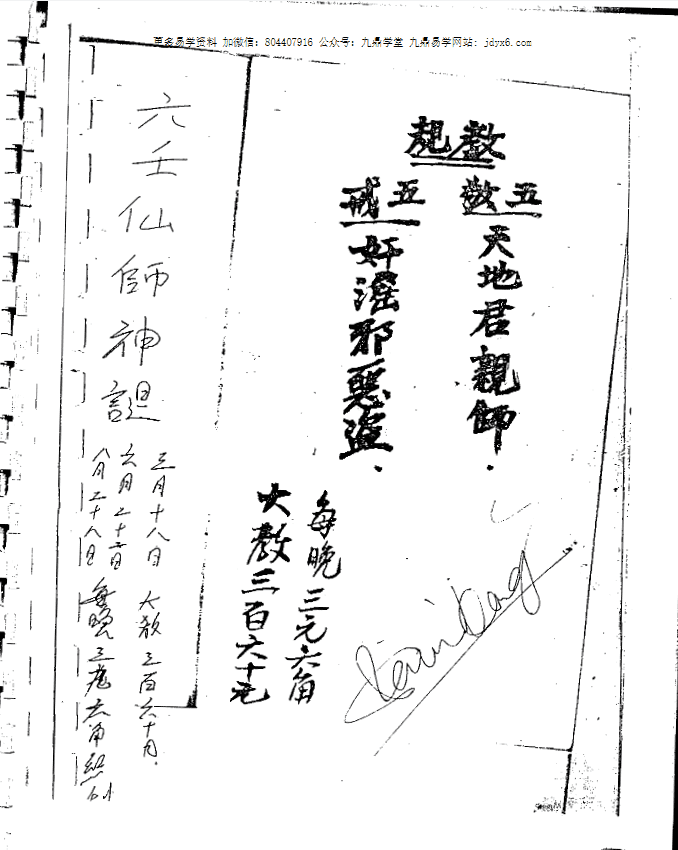 更多易学资料 加微信：804407916 公众号：九鼎学堂 九鼎易学网站: jdyx6.com
教規
五教
天地君親師.
五戒
奸淫邪惡盜.
每晚三元六角
大教三百六十元
六壬仙師神誕
三月十八日 大教三百六十
六月二十二日
八月二十八日 每晚三元六角